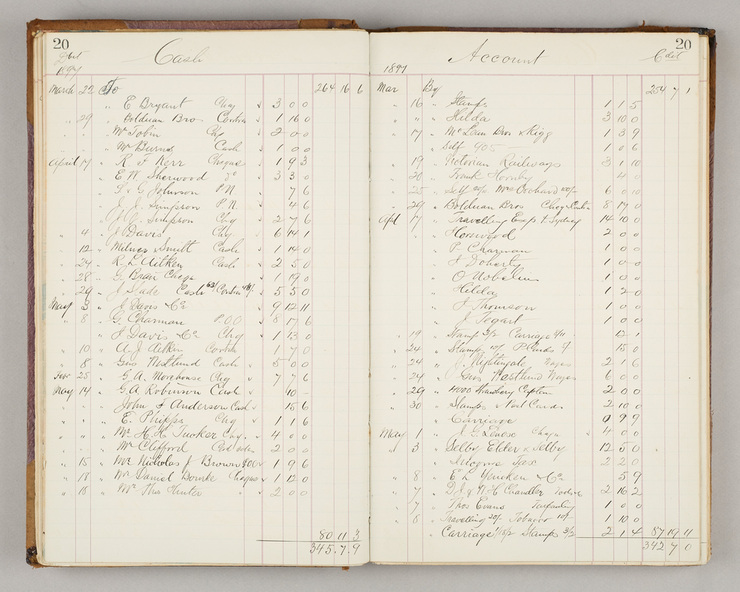 20
Cash
1897
March 22 To 264 16 6
" E Bryant Chq 3 0 0
" 29 " Bolduan Bro Contra 1 16 0
" Mr Tobin 2 0 0
" Mr Burns Cash 1 0 0
April 17 " R F Kerr Cheque 1 9 3
" E W Sherwood 3 3 0
" G Johnson P N 7 6
" J J Simpson P N 4 6
" Simpson Chq 2 7 6
" 4 " J Davis Chq 6 14 1
" 12 " Milner Smitt Cash 1 10 0
" 24 " R L Aitken Cash 2 5 0
" 28 " G Bear Cheque 1 9 0
" 29 " J Slade Cash Contra 5 5 0
May 3 " J Davis & Co 9 12 11
" 8 " G Charman P.O.O 8 17 6
" J Davis & Co Chq 1 13 0
" 10 " A J Aitken Contra 1 7 0
" 8 " Geo Westlund Cash 5 0 0
25 " G A Morehouse Chq 7 7 6
May 14 " G A Robinson Cash 10 -
" John J Anderson Cash 15 6
" E Phipps Chq 1 1 6
" Mr H. H. Tucker Chq 4 0 0
" Mr Clifford 2 0 0
" 15 " Mr Nicholas J Brown 1 9 6
" 18 " Mr Daniel Bourke Cheque 1 12 0
" 18 " Mr Thos Hunter 2 0 0
80 11 3
345 7 9
20
Account
1897
Mar By 254 7 1
16 " Stamps 1 1 5
" " Hilda 3 10 0
" 17 " McLean Bros & Rigg 1 3 9
Self 1 0 6
" 19 " Victorian Railways 3 1 10
" 20 " Frank Hornby 4 0
" 25 " Self Mrs Orchard 6 0 0
" 29 " Bolduan Bros Cheq Contra 8 17 0
Apl 17 " Travelling Exps to Sydney 14 10 0
" Horwood 2 0 0
" P Charman 1 0 0
" J Doherty 1 0 0
" O Wobelin 1 0 0
" Hilda 1 2 0
" J Thomson 1 0 0
" J Tegart 1 0 0
" 19 " Stamps Carriage 12 1
" 24 " Stamps P Cards 15 0
" 24 " J Nightingale Wages 2 1 6
" 24 " Geo Westlund Wages 6 0 0
" 29 " Strawberry 2 0 0
" 30 " Stamps & Post Cards 2 10 0
" Carriage 0 9 9
May 1 " Cheque 4 0 0
" 3 " Selby Elder & Selby 12 5 0
" Income Tax 2 2 0
" 8 " E L Yencken & Co 5 9
" 7 " D J & W H Chandler 2 16 2
" 7 " Thos Evans 1 0 0
" 8 " Travelling Tobacco 1 10 0
Carriage Stamps 2 1 4 87 19 11
342 7 0